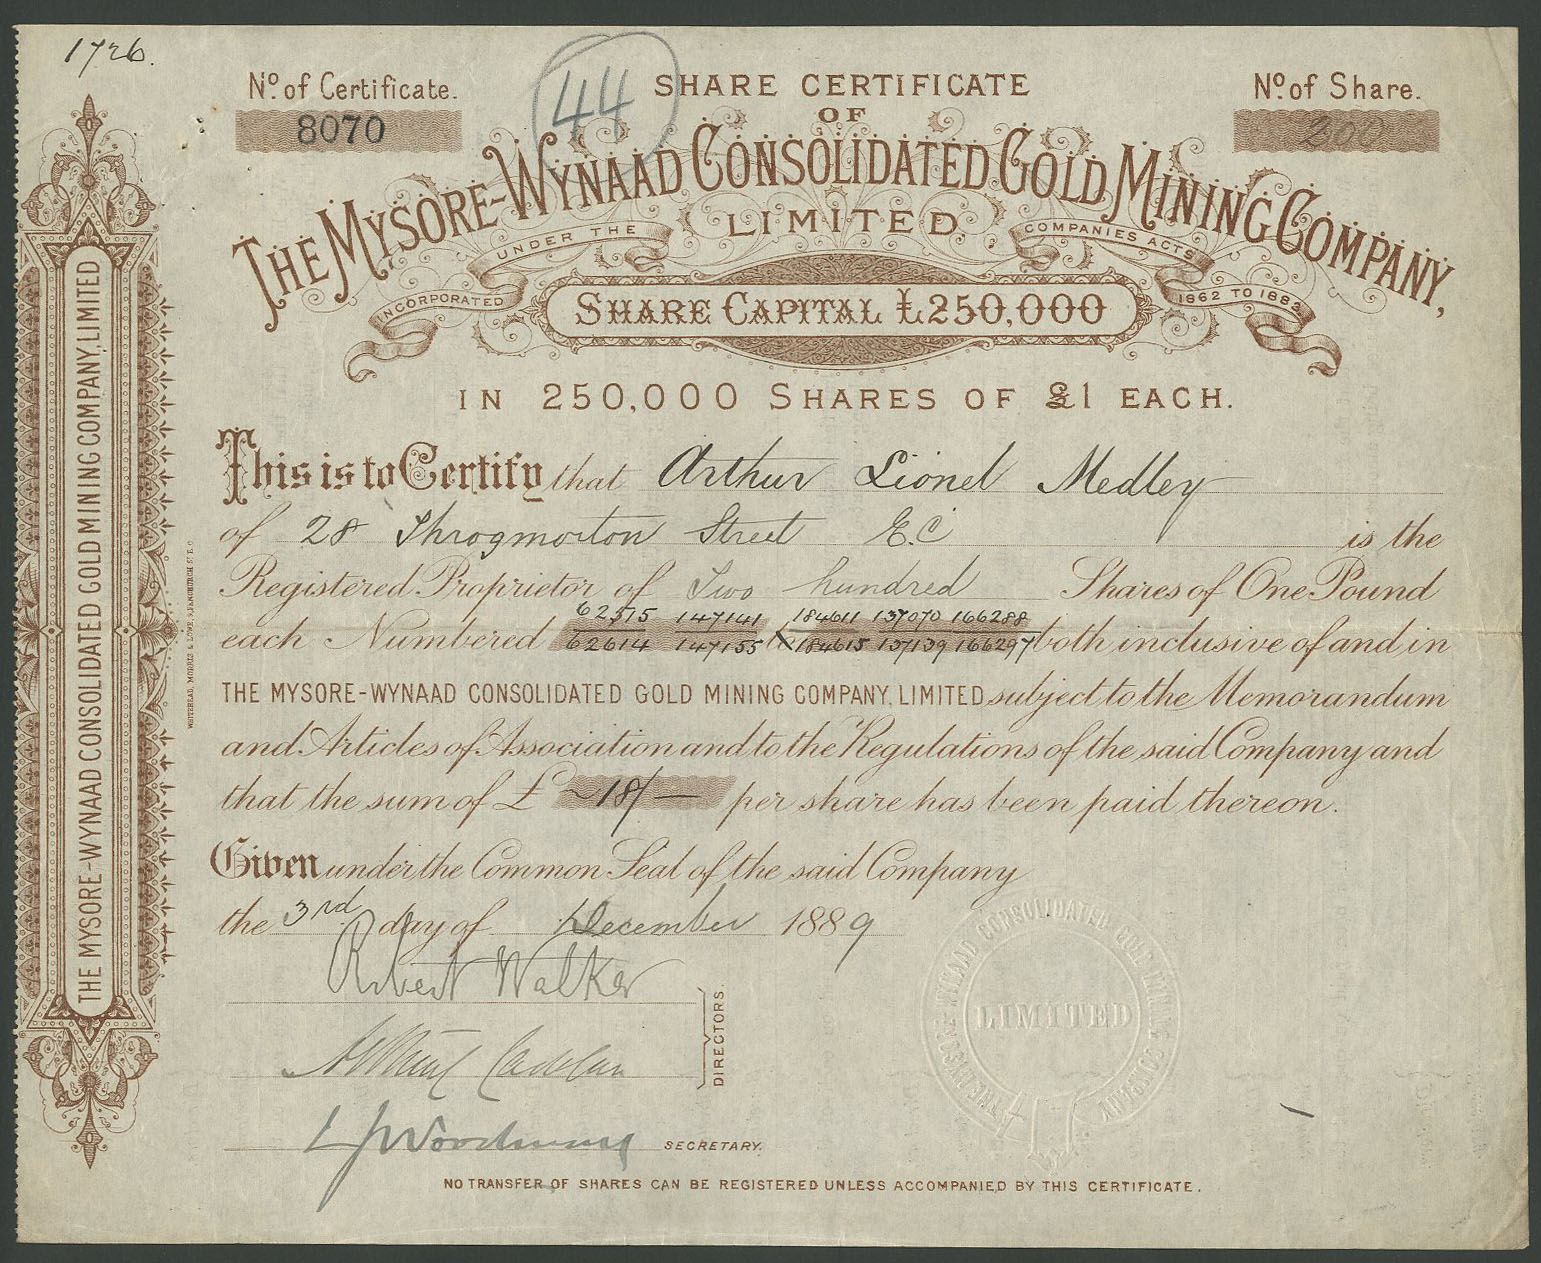 1726.
44
No. of Certificate.
8070
SHARE CERTIFICATE
OF
No. of Share.
200
THE MYSORE-WYNAAD CONSOLIDATED GOLD MINING COMPANY,
LIMITED
INCORPORATED UNDER THE COMPANIES ACTS 1862 TO 1883
SHARE CAPITAL £250,000
IN 250,000 SHARES OF £1 EACH.
This is to Certify that Arthur Lionel Medley
of 28 Throgmorton Street E.C is the
Registered Proprietor of Two hundred Shares of One Pound
62515 147141 184611 137070 166288
each Numbered 62614 147155 184615 137139 166297 both inclusive of and in
THE MYSORE-WYNAAD CONSOLIDATED GOLD MINING COMPANY, LIMITED subject to the Memorandum
and Articles of Association and to the Regulations of the said Company and
that the sum of £ ~18/— per share has been paid thereon.
Given under the Common Seal of the said Company
the 3rd day of December 1889
Robert Walker
DIRECTORS.
SECRETARY.
NO TRANSFER OF SHARES CAN BE REGISTERED UNLESS ACCOMPANIED BY THIS CERTIFICATE.
THE MYSORE-WYNAAD CONSOLIDATED GOLD MINING COMPANY, LIMITED
THE MYSORE-WYNAAD CONSOLIDATED GOLD MINING COMPANY
LIMITED